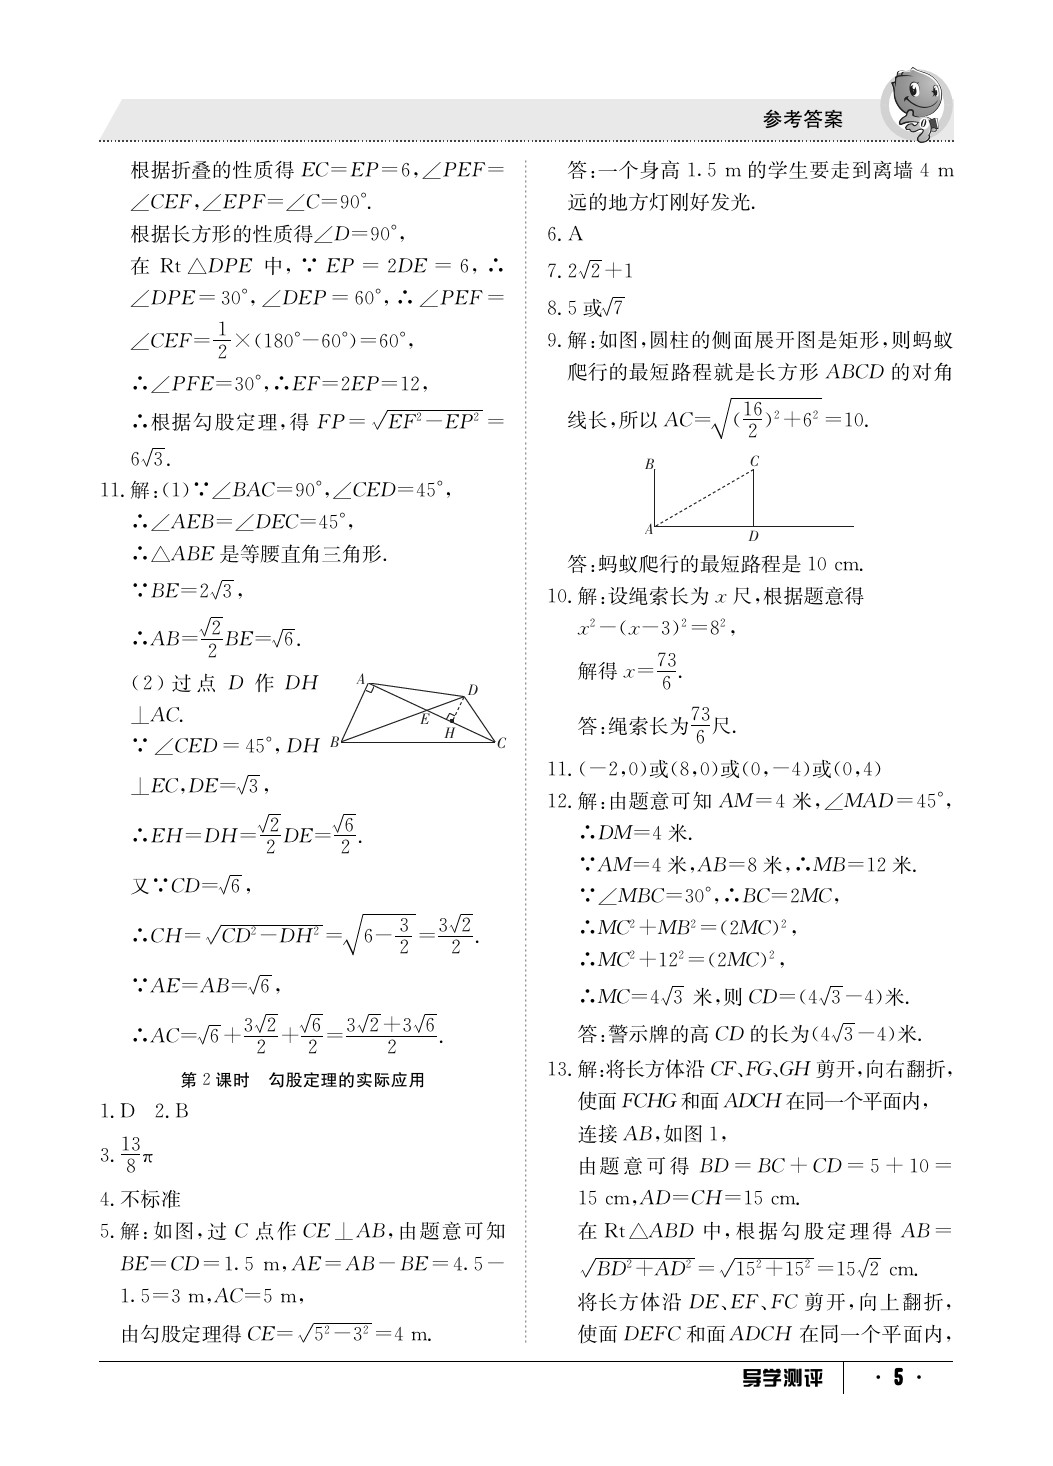 参考答案
根据折叠的性质得 EC=EP=6,∠PEF=
∠CEF,∠EPF=∠C=90°.
根据长方形的性质得∠D=90°,
在 Rt △DPE 中,∵ EP = 2DE = 6,∴
∠DPE=30°,∠DEP=60°,∴∠PEF=
∠CEF=1/2×(180°-60°)=60°,
∴∠PFE=30°,∴EF=2EP=12,
∴根据勾股定理,得 FP=√(EF²-EP²)=
6√3.
11.解:(1)∵∠BAC=90°,∠CED=45°,
∴∠AEB=∠DEC=45°,
∴△ABE 是等腰直角三角形.
∵BE=2√3,
∴AB=√2/2BE=√6.
(2)过点 D 作 DH
⊥AC.
∵∠CED=45°,DH
⊥EC,DE=√3,
A
D
E
H
B
C
∴EH=DH=√2/2DE=√6/2.
又∵CD=√6,
∴CH=√(CD²-DH²)=√(6-3/2)=3√2/2.
∵AE=AB=√6,
∴AC=√6+3√2/2+√6/2=(3√2+3√6)/2.
第 2 课时　勾股定理的实际应用
1.D　2.B
3.13/8π
4.不标准
5.解:如图,过 C 点作 CE⊥AB,由题意可知
BE=CD=1.5 m,AE=AB-BE=4.5-
1.5=3 m,AC=5 m,
由勾股定理得 CE=√(5²-3²)=4 m.
答:一个身高 1.5 m 的学生要走到离墙 4 m
远的地方灯刚好发光.
6.A
7.2√2+1
8.5 或√7
9.解:如图,圆柱的侧面展开图是矩形,则蚂蚁
爬行的最短路程就是长方形 ABCD 的对角
线长,所以 AC=√((16/2)²+6²)=10.
B
C
A
D
答:蚂蚁爬行的最短路程是 10 cm.
10.解:设绳索长为 x 尺,根据题意得
x²-(x-3)²=8²,
解得 x=73/6.
答:绳索长为73/6尺.
11.(-2,0)或(8,0)或(0,-4)或(0,4)
12.解:由题意可知 AM=4 米,∠MAD=45°,
∴DM=4 米.
∵AM=4 米,AB=8 米,∴MB=12 米.
∵∠MBC=30°,∴BC=2MC,
∴MC²+MB²=(2MC)²,
∴MC²+12²=(2MC)²,
∴MC=4√3 米,则 CD=(4√3-4)米.
答:警示牌的高 CD 的长为(4√3-4)米.
13.解:将长方体沿 CF、FG、GH 剪开,向右翻折,
使面 FCHG 和面 ADCH 在同一个平面内,
连接 AB,如图 1,
由题意可得 BD=BC+CD=5+10=
15 cm,AD=CH=15 cm.
在 Rt△ABD 中,根据勾股定理得 AB=
√(BD²+AD²)=√(15²+15²)=15√2 cm.
将长方体沿 DE、EF、FC 剪开,向上翻折,
使面 DEFC 和面 ADCH 在同一个平面内,
导学测评
·5·